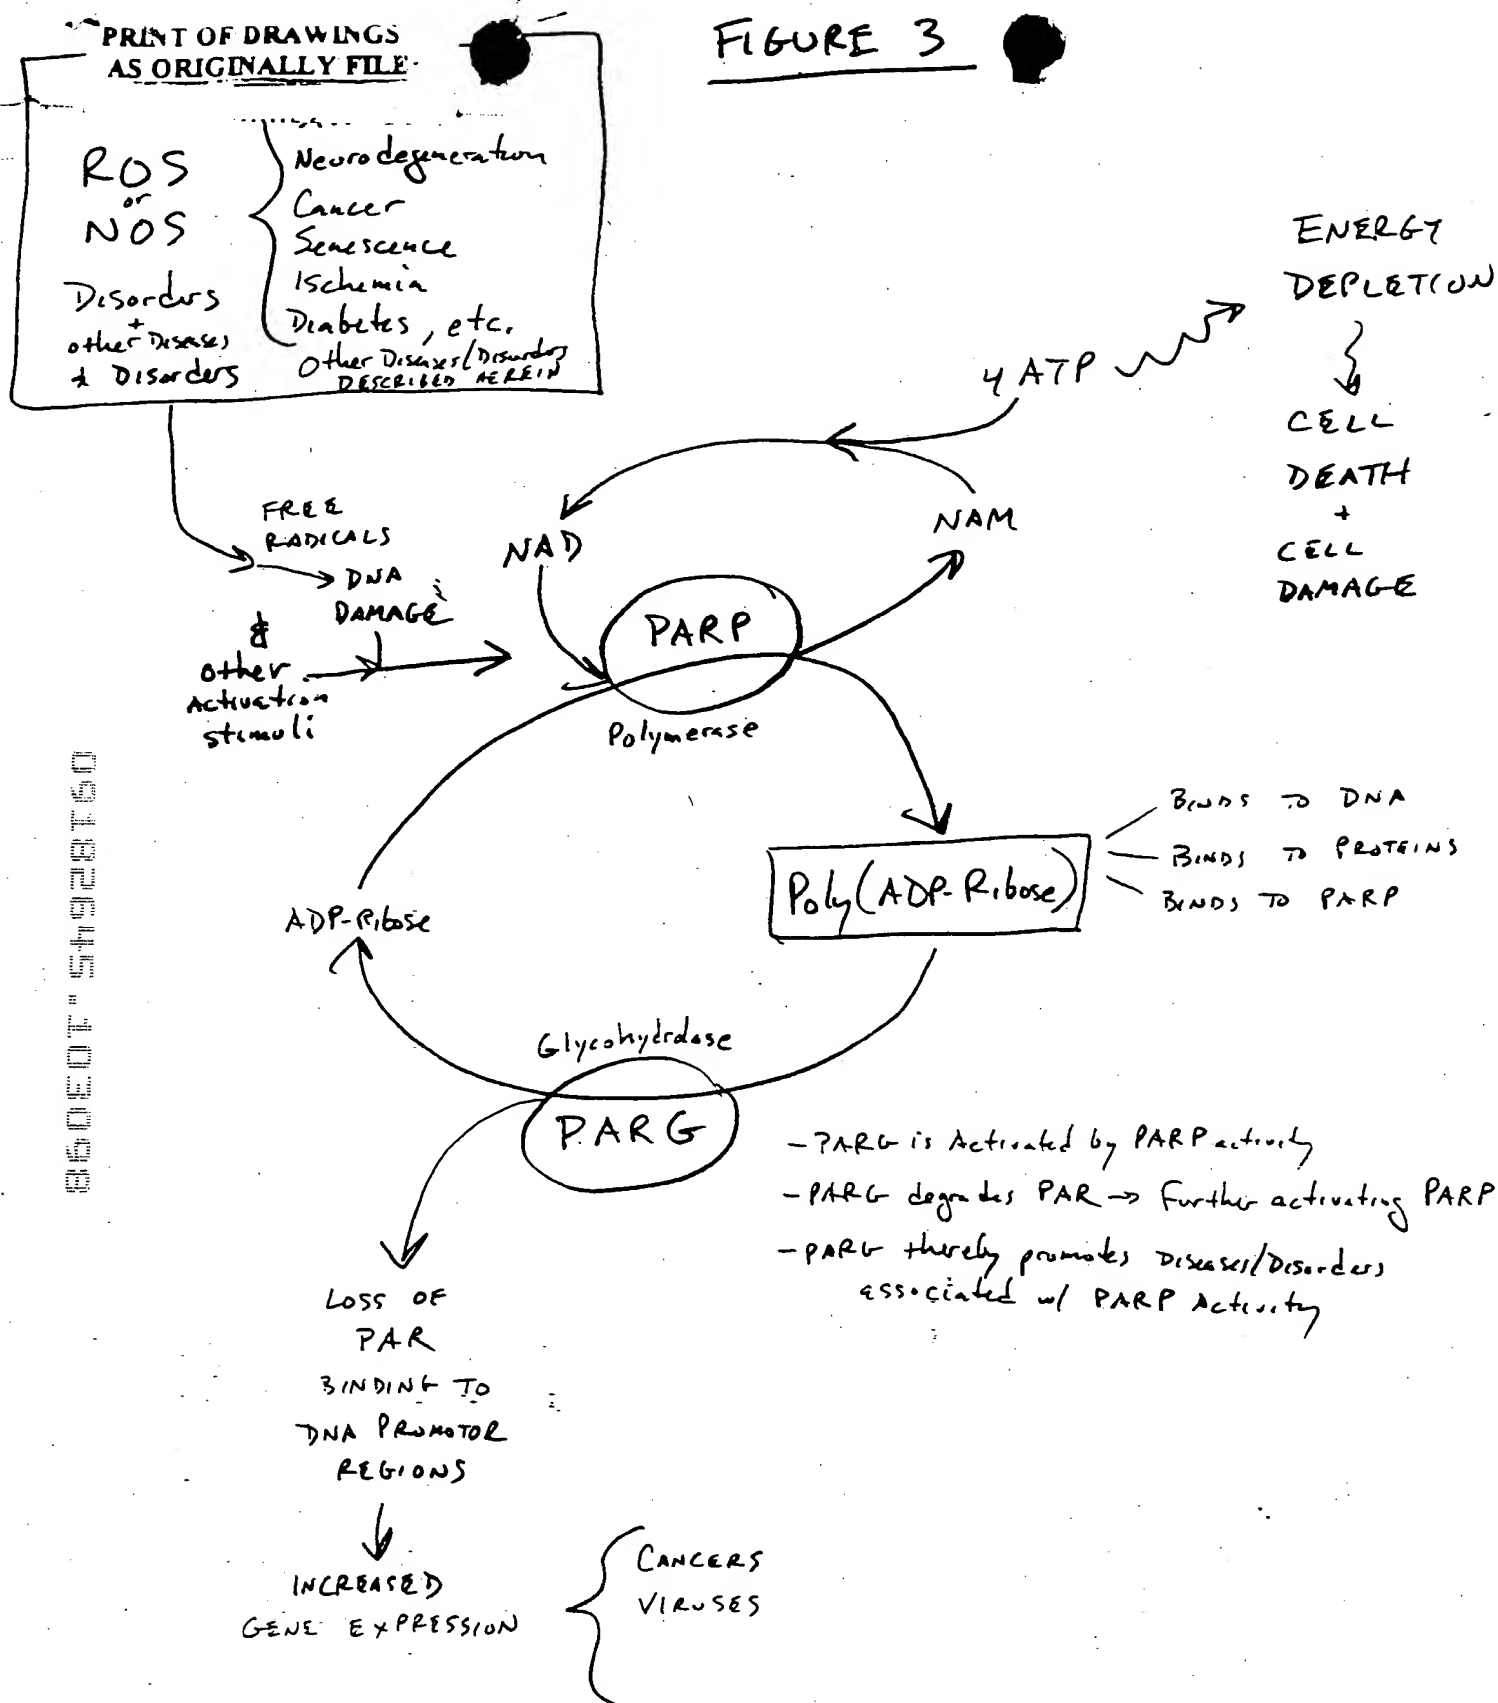 PRINT OF DRAWINGS
AS ORIGINALLY FILE
FIGURE 3
ROS
or
NOS
Disorders
+
other Diseases
& Disorders
Neurodegeneration
Cancer
Senescence
Ischemia
Diabetes, etc.
Other Diseases/Disorders
DESCRIBED HEREIN
ENERGY
DEPLETION
CELL
DEATH
+
CELL
DAMAGE
4 ATP
NAM
NAD
FREE
RADICALS
DNA
DAMAGE
&
other
Activation
stimuli
PARP
Polymerase
Poly(ADP-Ribose)
BINDS TO DNA
BINDS TO PROTEINS
BINDS TO PARP
ADP-Ribose
Glycohydrolase
PARG
- PARG is Activated by PARP activity
- PARG degrades PAR → Further activating PARP
- PARG thereby promotes Diseases/Disorders
associated w/ PARP Activity
LOSS OF
PAR
BINDING TO
DNA PROMOTOR
REGIONS
INCREASED
GENE EXPRESSION
CANCERS
VIRUSES
09182945.103098